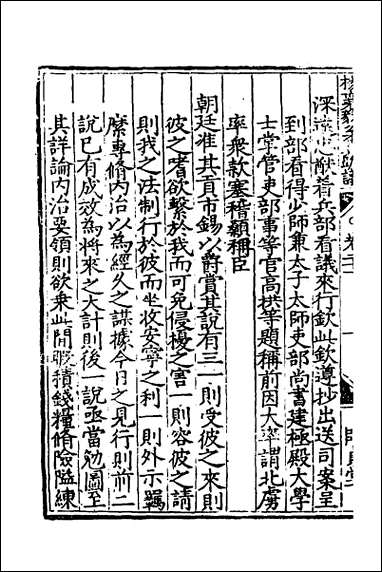 深遠忠猷着兵部看議來行欽此欽遵抄出送司案呈
到部看得少師兼太子太師吏部尚書建極殿大學
士掌管吏部事等官高拱等題稱前因大率謂北虜
率衆款塞稽顙稱臣
朝廷准其貢市錫以爵賞其說有三一則受彼之來則
彼之嗜欲繫於我而可免侵擾之害一則容彼之請
則我之法制行於彼而坐收安寧之利一則外示羈
縻專脩內治以爲經久之謀據今日之見行則前二
說已有成效爲將來之大計則後一說亟當勉圖至
其詳論內治要領則欲乘此閒暇積錢糧脩險隘練